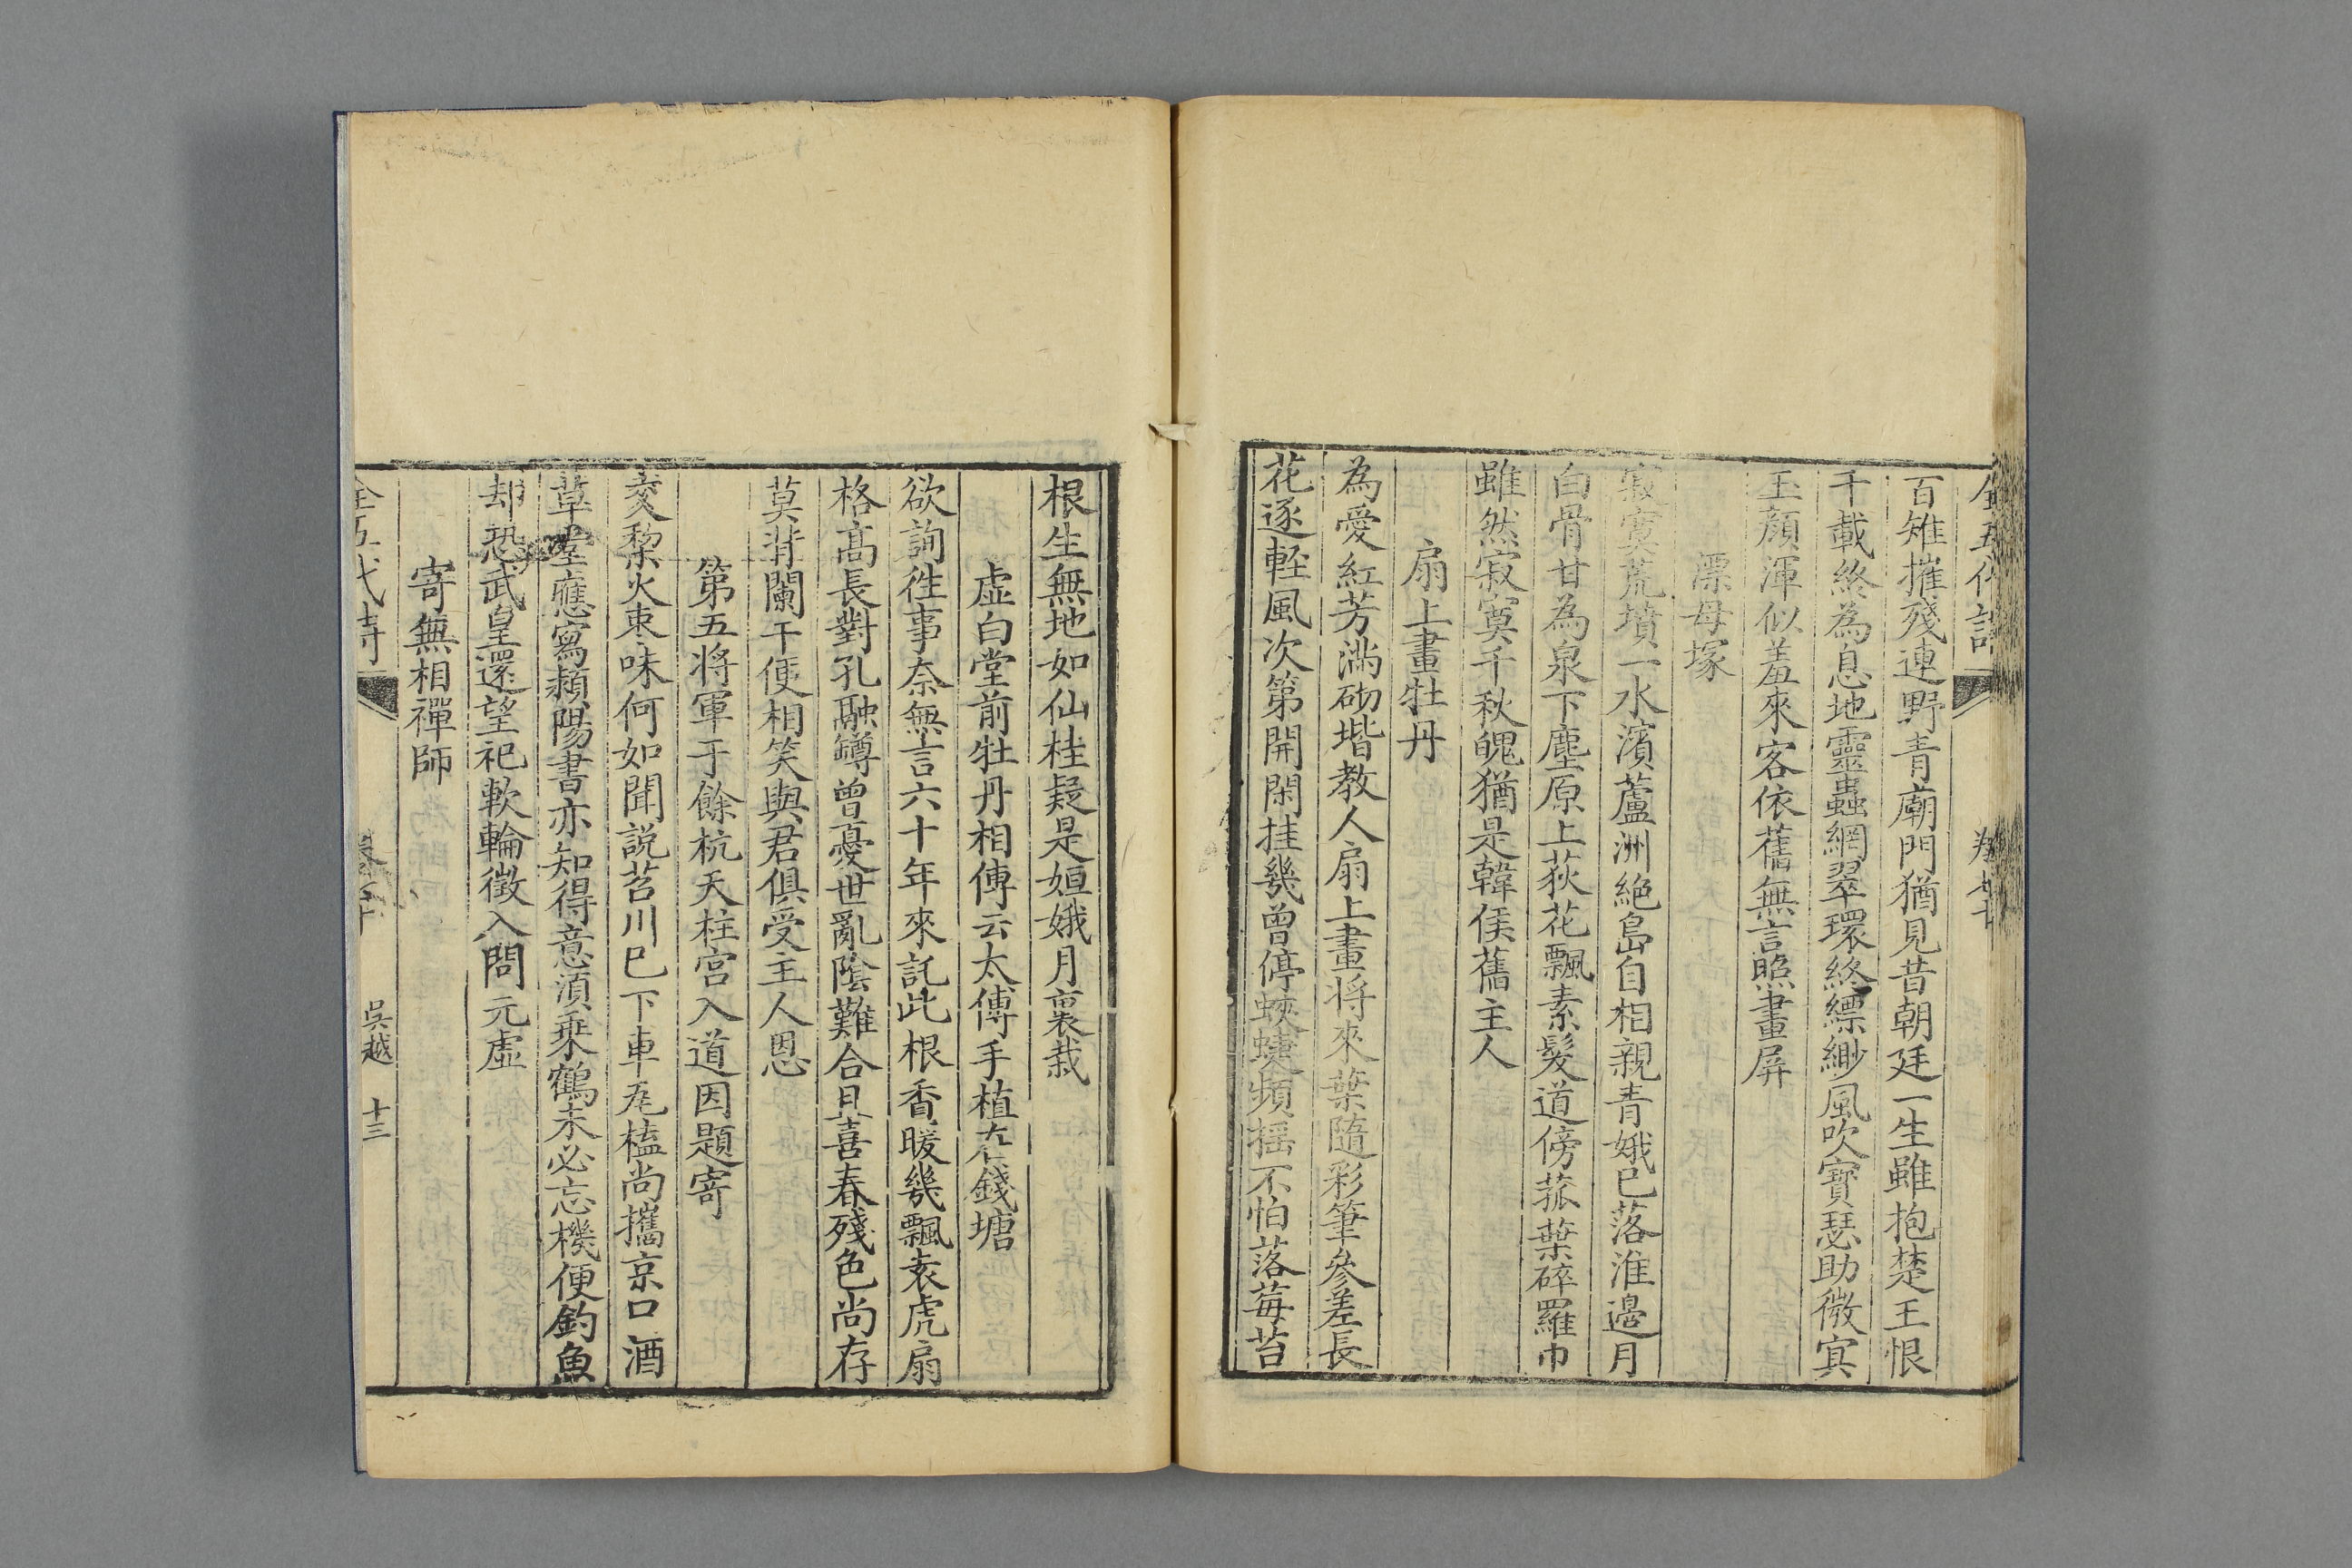 全五代詩
百雉摧殘連野青廟門猶見昔朝廷一生雖抱楚王恨
千載終為息地靈蟲網翠環終縹緲風吹寳瑟助微㝠
玉顔渾似羞來客依舊無言照畫屏
漂母塚
寂寞荒墳一水濱蘆洲絶島自相親青娥已落淮邉月
白骨甘為泉下塵原上荻花飄素髮道傍菰葉碎羅巾
雖然寂寞千秋魄猶是韓侯舊主人
扇上畫牡丹
為愛紅芳滿砌堦教人扇上畫将來葉隨彩筆參差長
花逐輕風次第開閑挂幾曾停蛺蝶頻摇不怕落莓苔
根生無地如仙桂疑是姮娥月裏栽
虚白堂前牡丹相傳云太傅手植在錢塘
欲詢徃事奈無言六十年來託此根香暖幾飄袁虎扇
格高長對孔融罇曾憂世亂陰難合且喜春殘色尚存
莫背闌干便相笑與君俱受主人恩
第五将軍于餘杭天柱宫入道因題寄
交棃火枣味何如聞説苕川已下車瓦榼尚攜京口酒
草堂應寫頴陽書亦知得意須乗鶴未必忘機便釣魚
却恐武皇還望祀軟輪徵入問元虚
寄無相禪師
全五代詩
吳越
十三